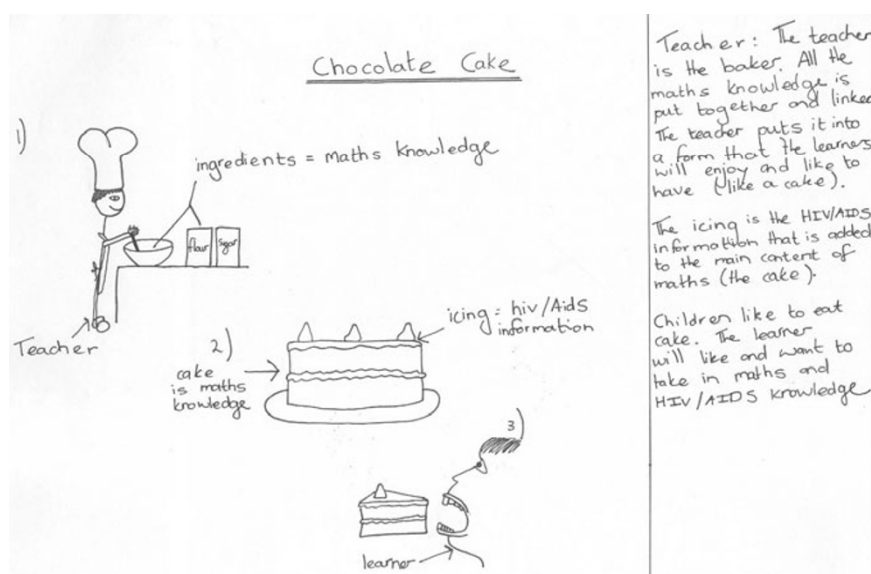 Chocolate Cake
1)
ingredients = maths knowledge
flour
sugar
Teacher
2)
cake
is maths
knowledge
icing = hiv/Aids
information
3)
learner
Teacher: The teacher
is the baker. All the
maths knowledge is
put together and linked
The teacher puts it into
a form that the learners
will enjoy and like to
have (like a cake).
The icing is the HIV/AIDS
information that is added
to the main content of
maths (the cake).
Children like to eat
cake. The learner
will like and want to
take in maths and
HIV/AIDS knowledge